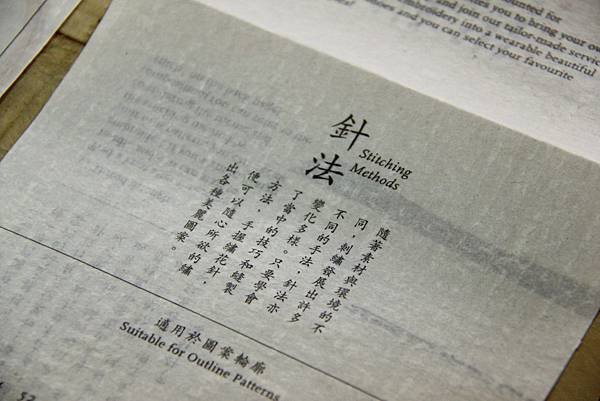 you to bring your
and join our tailor-made
embroidery into a wearable beautiful
and you can select your favourite
針法
Stitching
Methods
隨著素材與環境的不
同，刺繡發展出許多
不同的手法，針法亦
變化多樣。只要學會
了當中的技巧和縫製
方法，手握繡花針，
便可以隨心所欲的繡
出各種美麗圖案
適用於圖案輪廓
Suitable for Outline Patterns